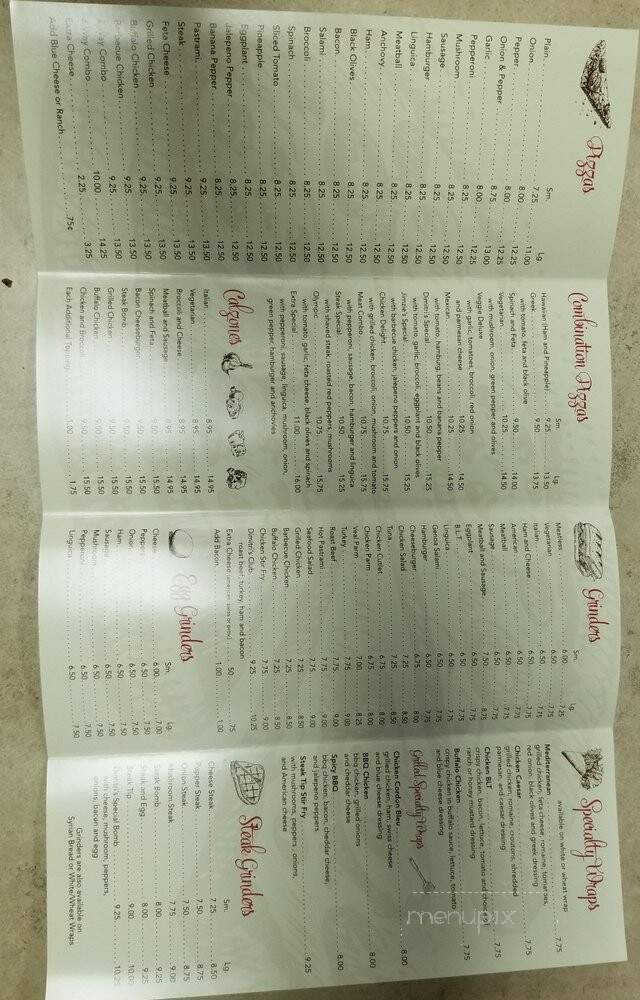 Pizzas
Sm. Lg.
Plain 7.25 11.00
Onion 8.00 12.25
Pepper 8.00 12.25
Onion & Pepper 8.75 13.00
Garlic 8.00 12.25
Pepperoni 8.25 12.50
Mushroom 8.25 12.50
Sausage 8.25 12.50
Hamburger 8.25 12.50
Linguica 8.25 12.50
Meatball 8.25 12.50
Anchovy 8.25 12.50
Ham 8.25 12.50
Black Olives 8.25 12.50
Bacon 8.25 12.50
Salami 8.25 12.50
Broccoli 8.25 12.50
Spinach 8.25 12.50
Sliced Tomato 8.25 12.50
Pineapple 8.25 12.50
Eggplant 8.25 12.50
Jalepeno Pepper 8.25 12.50
Banana Pepper 8.25 12.50
Pastrami 9.25 13.50
Steak 9.25 13.50
Feta Cheese 9.25 13.50
Grilled Chicken 9.25 13.50
Buffalo Chicken 9.25 13.50
Barbecue Chicken 9.25 13.50
Way Combo 10.00 14.25
Extra Cheese 2.25 3.25
Add Blue Cheese or Ranch 75¢
Combination Pizzas
Sm. Lg.
Hawaiian (Ham and Pineapple) 9.25 13.50
Greek 9.50 13.75
with tomato, feta and black olive
Spinach and Feta 9.50 14.00
Vegetarian 10.25 14.50
with mushroom, onion, green pepper and olives
Veggie Deluxe
with garlic, tomatoes, broccoli, red onion
and parmesan cheese 10.25 14.50
Mexican 10.25 14.50
with tomato, hamburg, beans and banana pepper
Dimitri's Special 10.50 15.25
with tomato, garlic, broccoli, eggplant and black olives
Special 10.50 15.25
with barbecue chicken, jalapeno peppers and onion
Chicken Delight 10.75 15.75
with grilled chicken, broccoli, onion, mushroom and tomato
Meat Combo 10.75 15.75
with pepperoni, sausage, bacon, hamburger and linguica
Steak Special 10.50 15.25
with shaved steak, roasted red peppers, mushrooms
Olympic 10.75 15.75
with tomato, garlic, feta cheese, black olives and spinach
Extra Special 11.00 16.00
with pepperoni, sausage, linguica, mushroom, onion,
green pepper, hamburger and anchovies
Calzones
Italian 8.95 14.95
Vegetarian 8.95 14.95
Broccoli and Cheese 8.95 14.95
Meatball and Sausage 8.95 14.95
Spinach and Feta 9.50 15.50
Bacon Cheeseburger 9.50 15.50
Steak Bomb 9.50 15.50
Grilled Chicken 9.50 15.50
Buffalo Chicken 9.50 15.50
Chicken and Broccoli 9.50 15.50
Each Additional Topping 1.00 1.75
Grinders
Sm. Lg.
Meatless 6.00 7.25
Vegetarian 6.50 7.75
Italian 6.50 7.75
Ham and Cheese 6.50 7.75
American 6.50 7.75
Meatball 6.50 7.75
Sausage 6.50 7.75
Meatball and Sausage 7.50 8.75
Eggplant 6.50 7.75
B.L.T. 6.50 7.75
Linguica 6.50 7.75
Genoa Salami 6.50 7.75
Hamburger 6.50 7.75
Cheeseburger 6.75 8.00
Chicken Salad 7.25 8.50
Tuna 7.25 8.50
Chicken Cutlet 6.75 8.00
Chicken Parm 6.75 8.00
Veal Parm 7.00 8.25
Turkey 7.75 9.00
Roast Beef 7.75 9.00
Hot Pastrami 7.75 9.00
Seafood Salad 7.75 9.00
Grilled Chicken 7.25 8.50
Barbecue Chicken 7.25 8.50
Buffalo Chicken 7.25 8.50
Chicken Stir Fry 7.75 9.00
Dimitri's Club 9.25 10.25
roast beef, turkey, ham and bacon
Extra Cheese (american, swiss or prov) 50 75
Add Bacon 1.00 1.00
Egg Grinders
Sm. Lg.
Cheese 6.00 7.00
Pepper 6.50 7.50
Onion 6.50 7.50
Ham 6.50 7.50
Sausage 6.50 7.50
Mushroom 6.50 7.50
Pepperoni 6.50 7.50
Linguica 6.50 7.50
Specialty Wraps
available on white or wheat wrap
Mediterranean 7.75
grilled chicken, feta cheese, romaine, tomatoes,
red onion, black olives and greek dressing
Chicken Caesar 7.75
grilled chicken, romaine, croutons, shredded
parmesan, and caesar dressing
Chicken BLT 7.75
crispy chicken, bacon, lettuce, tomato and choice of
ranch or honey mustard dressing
Buffalo Chicken 7.75
crispy chicken in buffalo sauce, lettuce, tomato
and blue cheese dressing
Grilled Specialty Wraps
Chicken Cordon Bleu 8.00
grilled chicken, ham, swiss cheese
and blue cheese dressing
BBQ Chicken 8.00
bbq chicken, grilled onions
and cheddar cheese
Spicy BBQ 8.00
bbq chicken, bacon, cheddar cheese,
and jalapeno peppers
Steak Tip Stir Fry 9.25
with mushrooms, peppers, onions,
and American cheese
Steak Grinders
Sm. Lg.
Cheese Steak 7.25 8.50
Pepper Steak 7.50 8.75
Onion Steak 7.50 8.75
Mushroom Steak 7.75 9.00
Steak Bomb 8.00 9.25
Steak and Egg 8.00 9.25
Steak Tip 9.00 10.00
Special Bomb 9.25 10.25
with cheese, mushroom, peppers,
onions, bacon and egg
Grinders are also available on
Syrian Bread or White/Wheat Wraps
menupix